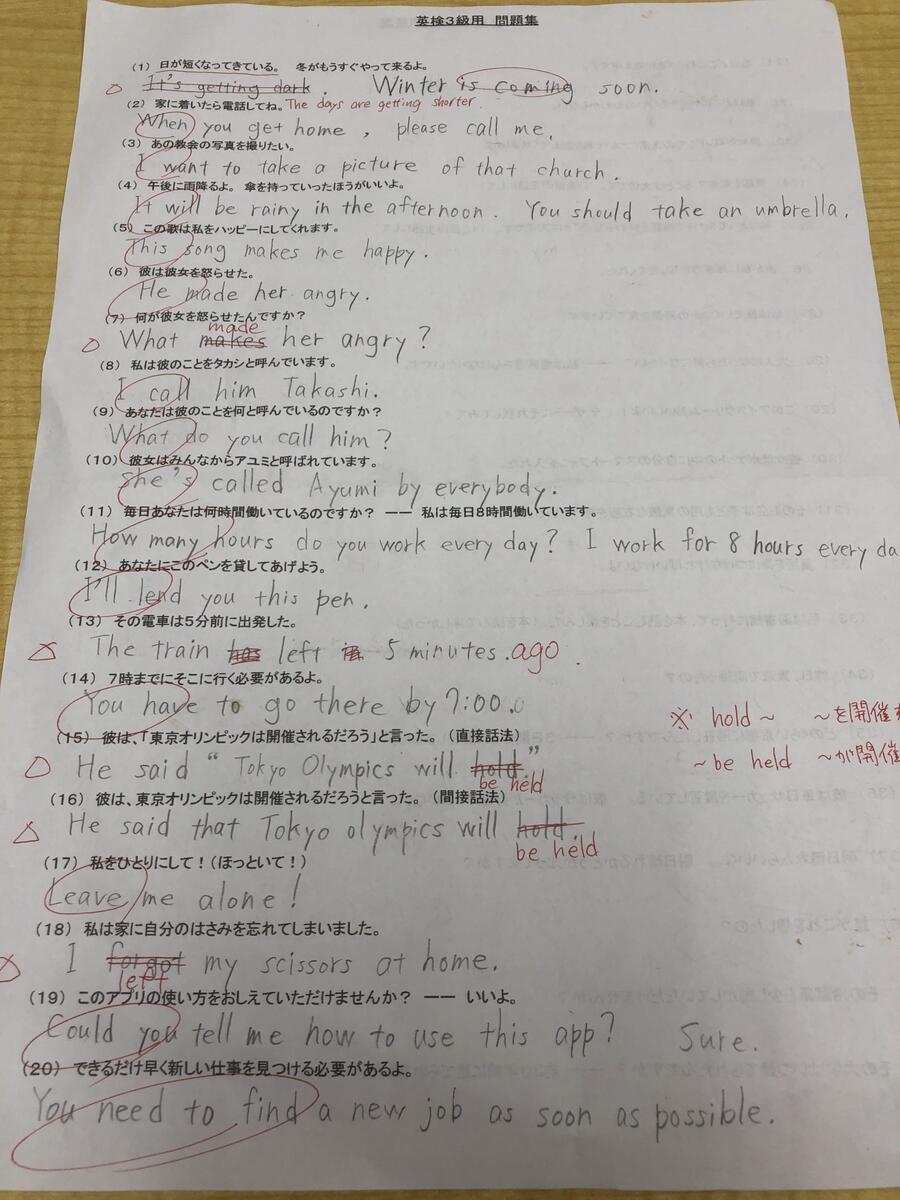 英検3級用 問題集
(1) 日が短くなってきている。 冬がもうすぐやって来るよ。
It's getting dark. Winter is coming soon.
(2) 家に着いたら電話してね。The days are getting shorter.
When you get home, please call me.
(3) あの教会の写真を撮りたい。
I want to take a picture of that church.
(4) 午後に雨降るよ。 傘を持っていったほうがいいよ。
It will be rainy in the afternoon. You should take an umbrella.
(5) この歌は私をハッピーにしてくれます。
This song makes me happy.
(6) 彼は彼女を怒らせた。
He made her angry.
(7) 何が彼女を怒らせたんですか?
made
What makes her angry?
(8) 私は彼のことをタカシと呼んでいます。
I call him Takashi.
(9) あなたは彼のことを何と呼んでいるのですか?
What do you call him?
(10) 彼女はみんなからアユミと呼ばれています。
She's called Ayumi by everybody.
(11) 毎日あなたは何時間働いているのですか? ―― 私は毎日8時間働いています。
How many hours do you work every day? I work for 8 hours every da
(12) あなたにこのペンを貸してあげよう。
I'll lend you this pen.
(13) その電車は5分前に出発した。
The train has left in 5 minutes. ago.
(14) 7時までにそこに行く必要があるよ。
You have to go there by 7:00.
(15) 彼は、「東京オリンピックは開催されるだろう」と言った。 (直接話法)
※ hold~ ~を開催
He said "Tokyo Olympics will hold."
be held
~be held ~が開催
(16) 彼は、東京オリンピックは開催されるだろうと言った。 (間接話法)
He said that Tokyo olympics will hold.
be held
(17) 私をひとりにして!(ほっといて!)
Leave me alone!
(18) 私は家に自分のはさみを忘れてしまいました。
I forgot my scissors at home.
left
(19) このアプリの使い方をおしえていただけませんか? ―― いいよ。
Could you tell me how to use this app? Sure.
(20) できるだけ早く新しい仕事を見つける必要があるよ。
You need to find a new job as soon as possible.